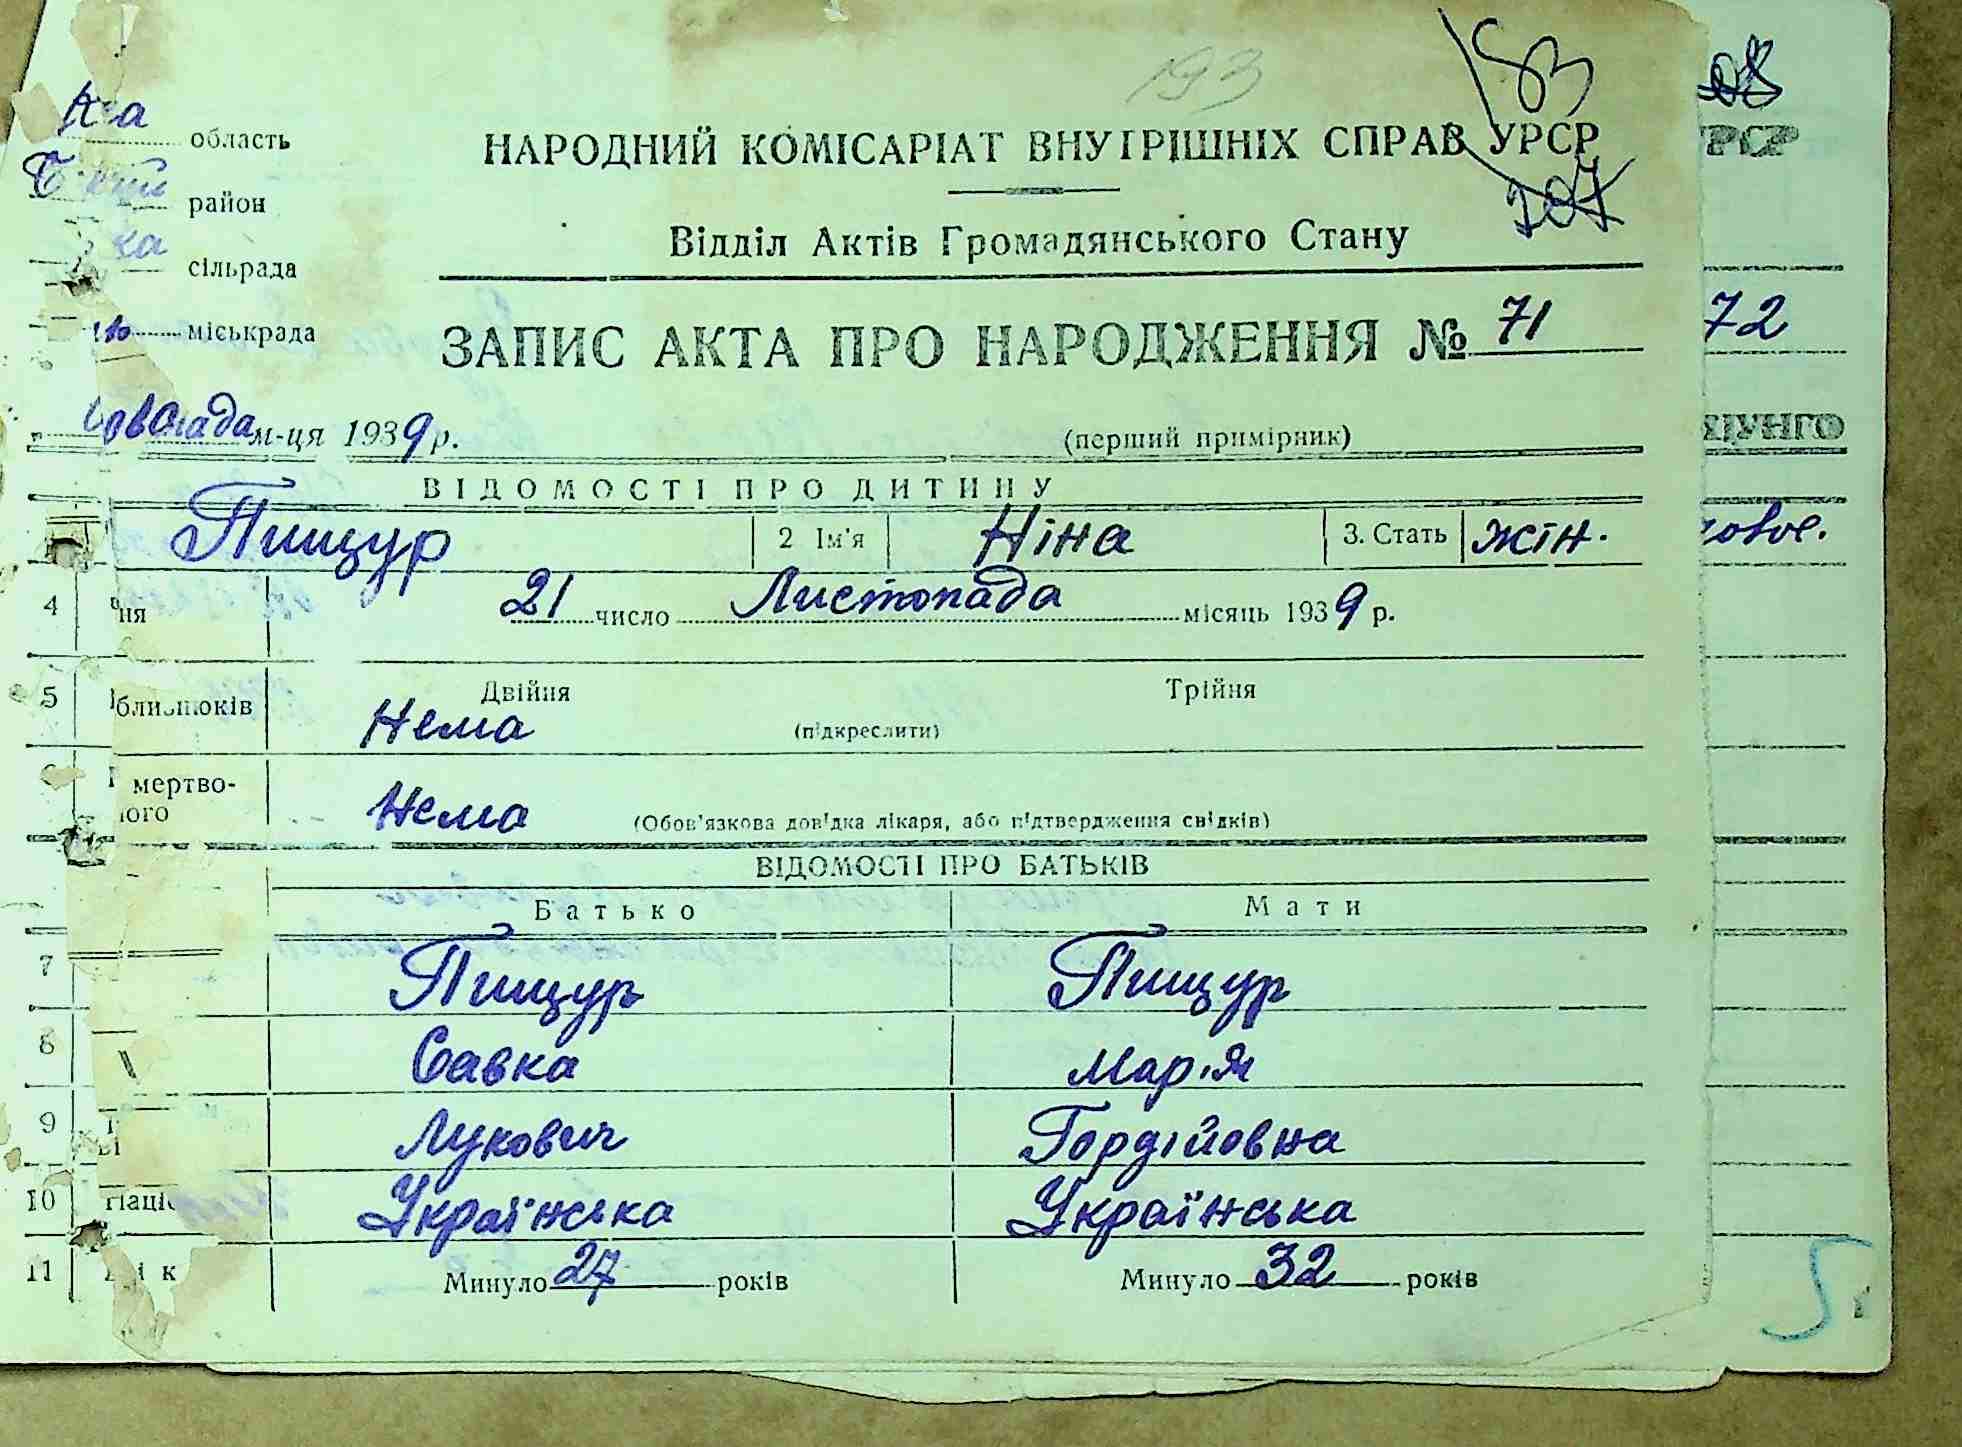 193
83
207
область
НАРОДНИЙ КОМІСАРІАТ ВНУТРІШНІХ СПРАВ УРСР
район
Відділ Актів Громадянського Стану
сільрада
міськрада
ЗАПИС АКТА ПРО НАРОДЖЕННЯ № 71
72
м-ця 1939 р. (перший примірник)
ВІДОМОСТІ ПРО ДИТИНУ
Пищур 2 Ім'я Ніна 3. Стать жін.
4 ня 21 число Листопада місяць 1939 р.
5 близнюків Двійня Трійня
Нема (підкреслити)
мертво-
ного Нема (Обов'язкова довідка лікаря, або підтвердження свідків)
ВІДОМОСТІ ПРО БАТЬКІВ
Батько Мати
7 Пищур Пищур
8 Савка Мар'я
9 Лукович Гордійовна
10 Націо Українська Українська
11 Минуло 27 років Минуло 32 років
5